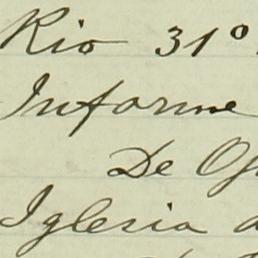 Rio 31º
Informe
De
Iglesia